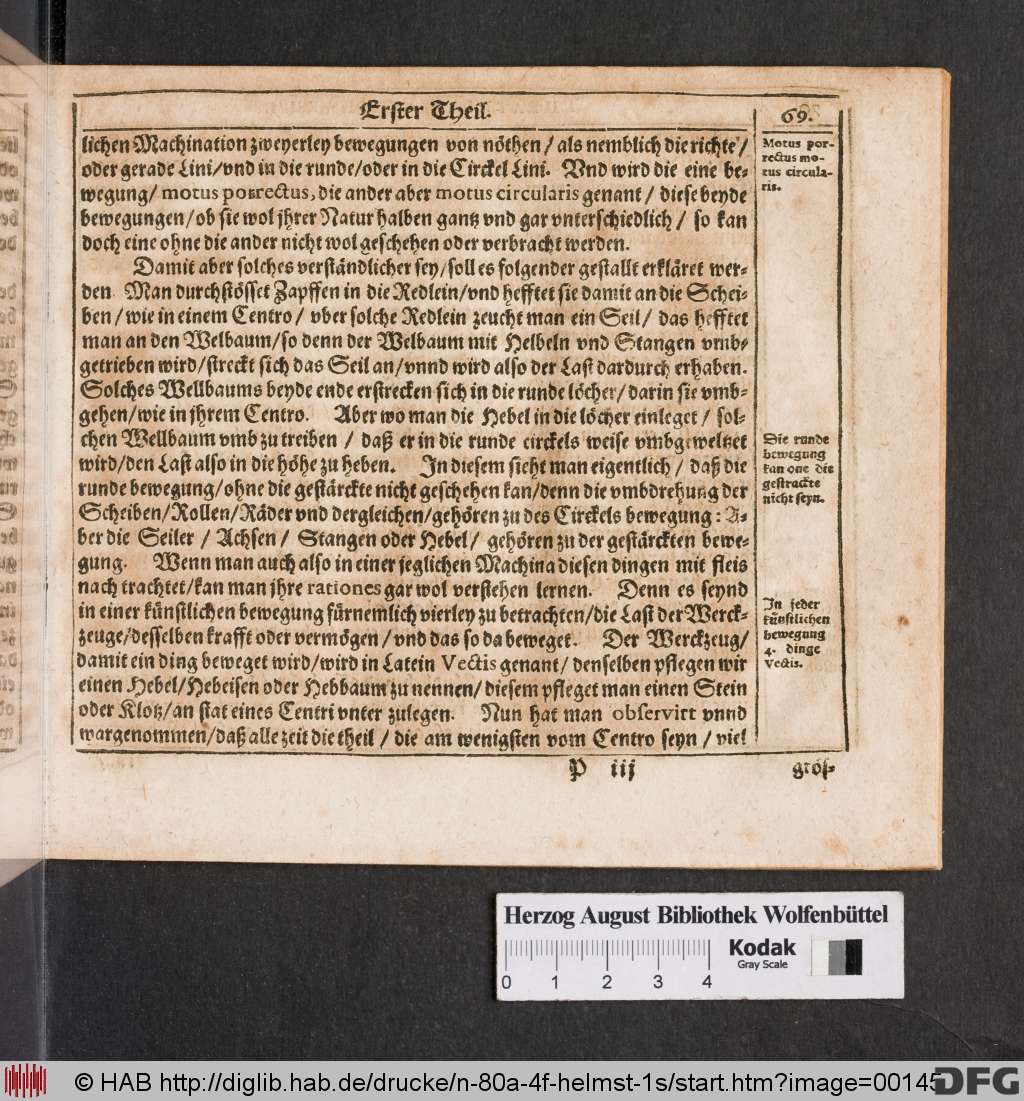 Erster Theil.
69.
lichen Machination zweyerley bewegungen von nöthen/ als nemblich die richte/
oder gerade Lini/vnd in die runde/oder in die Circkel Lini. Vnd wird die eine be-
wegung/ motus porrectus, die ander aber motus circularis genant/ diese beyde
bewegungen/ob sie wol jhrer Natur halben gantz vnd gar vnterschiedlich/ so kan
doch eine ohne die ander nicht wol geschehen oder verbracht werden.
Damit aber solches verständlicher sey/soll es folgender gestallt erkläret wer-
den. Man durchstösset Zapffen in die Redlein/vnd hefftet sie damit an die Schei-
ben/wie in einem Centro/ vber solche Redlein zeucht man ein Seil/ das hefftet
man an den Welbaum/so denn der Welbaum mit Helbeln vnd Stangen vmb-
getrieben wird/streckt sich das Seil an/vnnd wird also der Last dardurch erhaben.
Solches Wellbaums beyde ende erstrecken sich in die runde löcher/darin sie vmb-
gehen/wie in jhrem Centro. Aber wo man die Hebel in die löcher einleget/ sol-
chen Wellbaum vmb zu treiben/ daß er in die runde circkels weise vmbgeweltzet
wird/den Last also in die höhe zu heben. In diesem sieht man eigentlich/ daß die
runde bewegung/ohne die gestärckte nicht geschehen kan/denn die vmbdrehung der
Scheiben/Rollen/Räder vnd dergleichen/gehören zu des Circkels bewegung: A-
ber die Seiler/ Achsen/ Stangen oder Hebel/ gehören zu der gestärckten bewe-
gung. Wenn man auch also in einer jeglichen Machina diesen dingen mit fleis
nach trachtet/kan man jhre rationes gar wol verstehen lernen. Denn es seynd
in einer künstlichen bewegung fürnemlich vierley zu betrachten/die Last der Werck-
zeuge/desselben krafft oder vermögen/vnd das so da beweget. Der Werckzeug/
damit ein ding beweget wird/wird in Latein Vectis genant/ denselben pflegen wir
einen Hebel/Hebeisen oder Hebbaum zu nennen/diesem pfleget man einen Stein
oder Klotz/an stat eines Centri vnter zulegen. Nun hat man observirt vnnd
wargenommen/daß alle zeit die theil/ die am wenigsten vom Centro seyn/ viel
P iij
grös-
Motus por-
rectus mo-
tus circula-
ris.
Die runde
bewegung
kan one die
gestrackte
nicht seyn.
In jeder
künstlichen
bewegung
4. dinge
Vectis.
Herzog August Bibliothek Wolfenbüttel
0 1 2 3 4
Kodak
Gray Scale
© HAB http://diglib.hab.de/drucke/n-80a-4f-helmst-1s/start.htm?image=00145
DFG